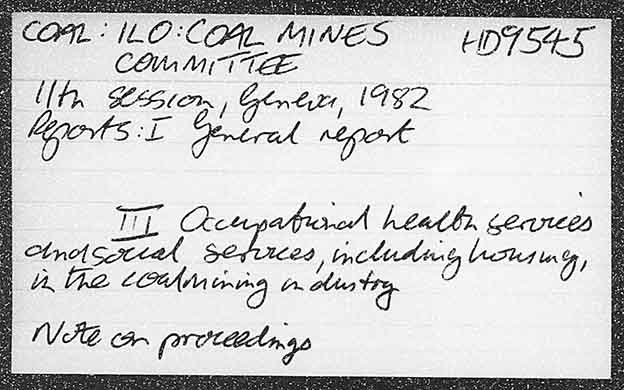 COAL: ILO: COAL MINES HD9545
COMMITTEE
11th session, Geneva, 1982
Reports: I General report
III Occupational health services
and social services, including housing,
in the coalmining industry
Note on proceedings